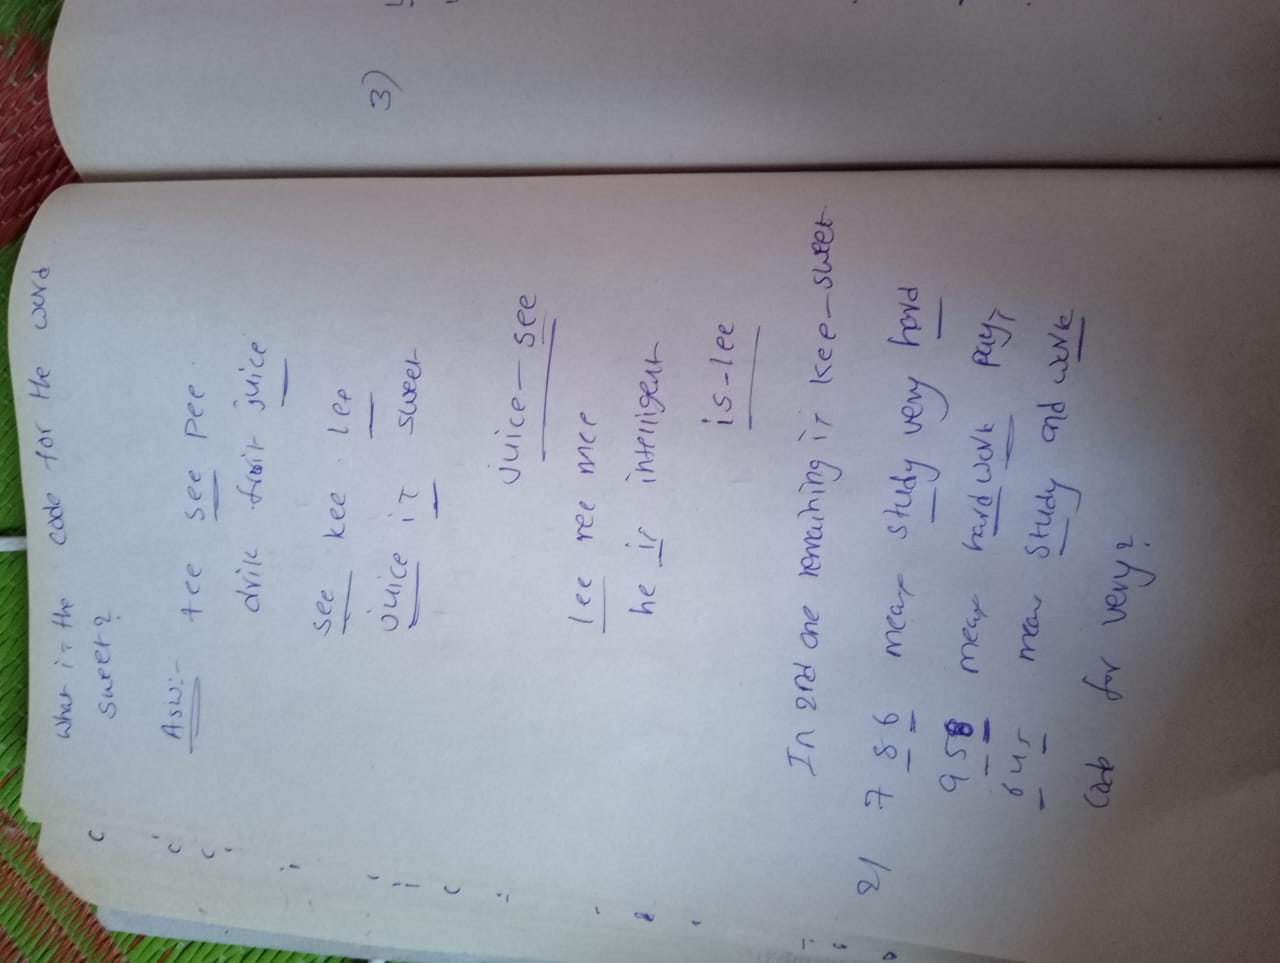 What is the code for the word
sweet?
Asw:- tee see pee
drik fruit juice
see kee lee
juice is sweet
juice - see
lee ree mee
he is intelligent
is - lee
In 2nd one remaining is kee - sweet
2) 7 8 6 means study very hard
9 5 8 means hard work pays
6 4 5 means study and work
Code for very?
3)